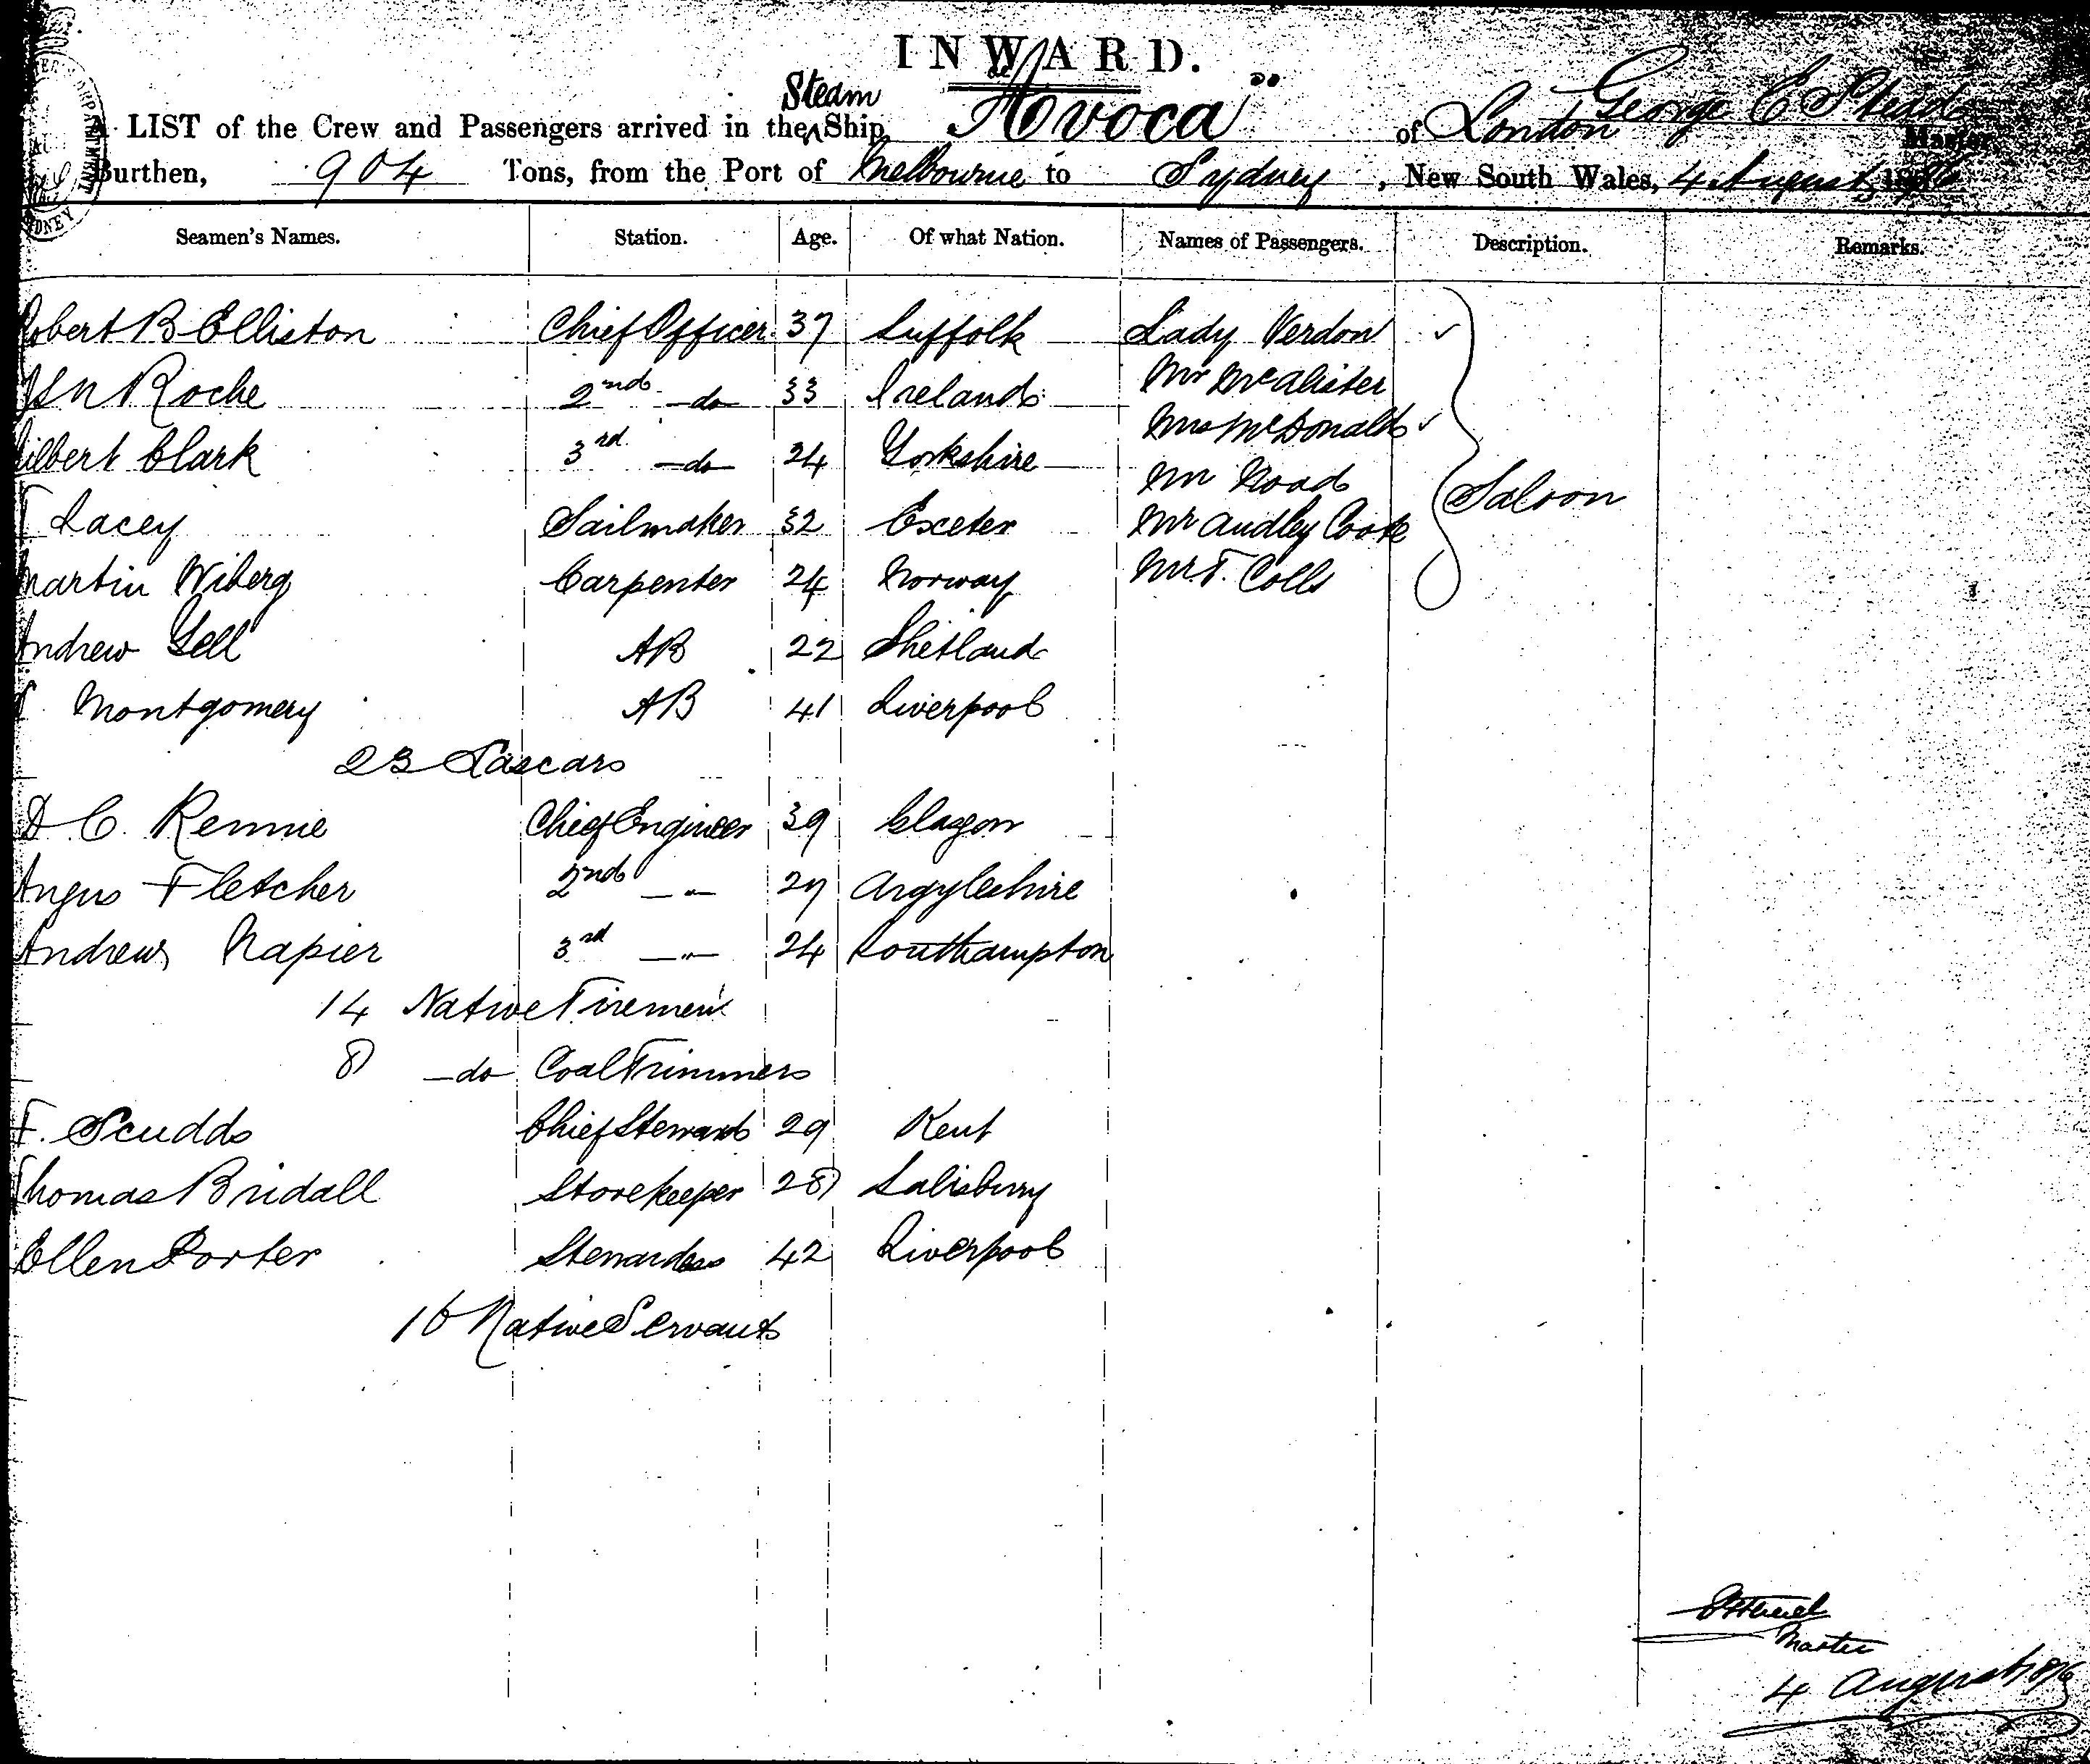 INWARD.
A LIST of the Crew and Passengers arrived in the Steam Ship "Avoca" of London George Master,
Burthen, 904 Tons, from the Port of Melbourne to Sydney, New South Wales, 4 August 1876
Seamen's Names. Station. Age. Of what Nation. Names of Passengers. Description. Remarks.
Robert B Elliston Chief Officer 37 Suffolk Lady Verdon
Roche 2nd do 33 Ireland Mr McAlister
Mrs McDonald
Gilbert Clark 3rd do 24 Yorkshire Mr Road
Saloon
T Lacey Sailmaker 32 Exceter Mr Audley Coote
Martin Wiberg Carpenter 24 Norway Mr T. Colls
Andrew Gell AB 22 Shetland
Montgomery AB 41 Liverpool
23 Lascars
D C. Rennie Chief Engineer 39 Glasgow
Angus Fletcher 2nd " 27 Argyleshire
Andrew Napier 3rd " 24 Southampton
14 Native Firemen
8 do Coal Trimmers
F. Scudds Chief Steward 29 Kent
Thomas Bridall Storekeeper 28 Salisbury
Ellen Porter Stewardess 42 Liverpool
16 Native Servants
Master
4 August 1876